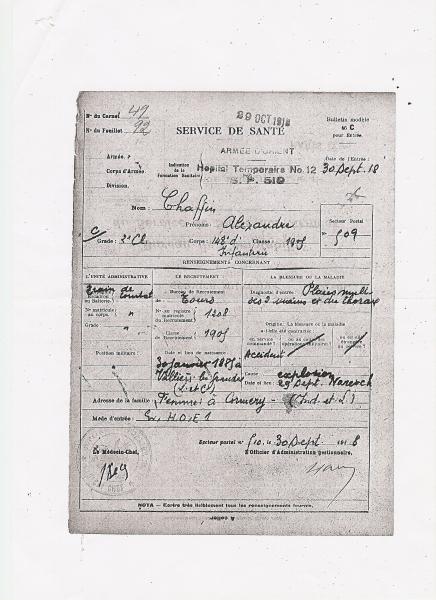 N° du Carnet 49
29 OCT 1918
Bulletin modèle
46 C
pour Entrée.
N° du Feuillet 92
SERVICE DE SANTÉ
ARMÉE D'ORIENT
Armée
Date de l'Entrée:
Corps d'Armée
Indication de la Formation Sanitaire
Hopital Temporaire No. 12
30 Sept. 18
Division.
S.P. 510
Nom: Chaffin
Prénoms: Alexandre
Secteur Postal
N° 509
Grade: 2e Cl.
Corps: 148e d'
Classe: 1905
Infanterie
RENSEIGNEMENTS CONCERNANT
L'UNITÉ ADMINISTRATIVE
LE RECRUTEMENT
LA BLESSURE OU LA MALADIE
train de combat
Escadron ou Batterie.
Bureau de Recrutement
de: Tours
Diagnostic d'entrée: Plaies mult
des 2 mains et du thorax
N° matricule au corps.
N° au registre matricule du Recrutement
1208
Grade
Classe de Recrutement
1905
Origine: La blessure ou la maladie
a-t-elle été contractée:
en service commandé?
Accident
Position militaire:
Date et lieu de naissance
30 janvier 1885 à
(I. et L.)
Cause explosion
Date et lieu: 29 Sept.
Adresse de la famille: Femme à Cormery - (Ind. et L.)
Mode d'entrée:
Secteur postal n° 510, le 30 Sept. 1918
Le Médecin-Chef,
L'Officier d'Administration gestionnaire,
NOTA — Ecrire très lisiblement tous les renseignements fournis.
A coller